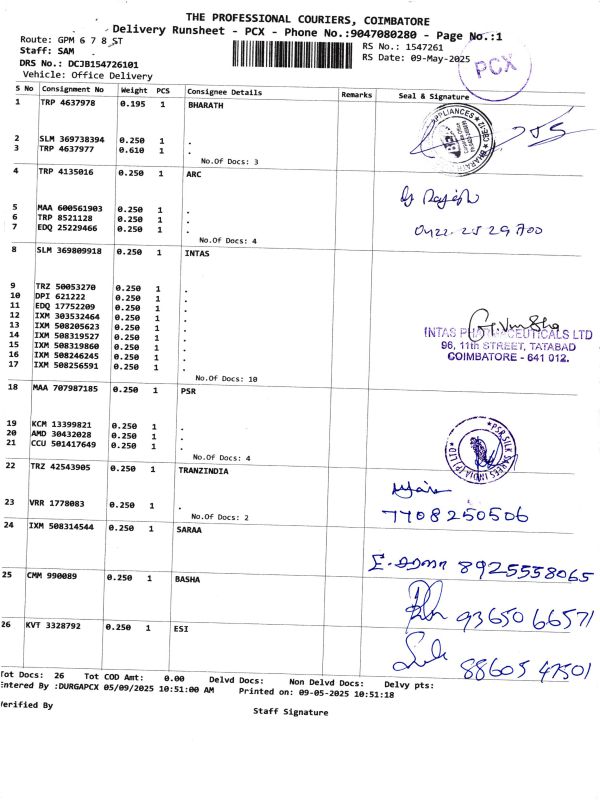 THE PROFESSIONAL COURIERS, COIMBATORE
Delivery Runsheet - PCX - Phone No.:9047080280 - Page No.:1
Route: GPM 6 7 8 ST
RS No.: 1547261
Staff: SAM
RS Date: 09-May-2025
DRS No.: DCJB154726101
PCX
Vehicle: Office Delivery
S No Consignment No Weight PCS Consignee Details Remarks Seal & Signature
1 TRP 4637978 0.195 1 BHARATH
2 SLM 369738394 0.250 1 .
3 TRP 4637977 0.610 1 .
No.Of Docs: 3
4 TRP 4135016 0.250 1 ARC
5 MAA 600561903 0.250 1 .
6 TRP 8521128 0.250 1 .
7 EDQ 25229466 0.250 1 .
No.Of Docs: 4
8 SLM 369809918 0.250 1 INTAS
9 TRZ 50053270 0.250 1 .
10 DPI 621222 0.250 1 .
11 EDQ 17752209 0.250 1 .
12 IXM 303532464 0.250 1 .
13 IXM 508205623 0.250 1 .
14 IXM 508319527 0.250 1 .
15 IXM 508319860 0.250 1 .
16 IXM 508246245 0.250 1 .
17 IXM 508256591 0.250 1 .
No.Of Docs: 10
INTAS PHARMACEUTICALS LTD
96, 11th STREET, TATABAD
COIMBATORE - 641 012.
18 MAA 707987185 0.250 1 PSR
19 KCM 13399821 0.250 1 .
20 AMD 30432028 0.250 1 .
21 CCU 501417649 0.250 1 .
No.Of Docs: 4
PSR SILK SAREES INDIA (P) LTD
22 TRZ 42543905 0.250 1 TRANZINDIA
23 VRR 1778083 0.250 1 .
No.Of Docs: 2
7708250506
24 IXM 508314544 0.250 1 SARAA
8925558065
25 CMM 990089 0.250 1 BASHA
93650 66571
26 KVT 3328792 0.250 1 ESI
88605 47501
Tot Docs: 26 Tot COD Amt: 0.00 Delvd Docs: Non Delvd Docs: Delvy pts:
Entered By :DURGAPCX 05/09/2025 10:51:00 AM Printed on: 09-05-2025 10:51:18
Verified By
Staff Signature